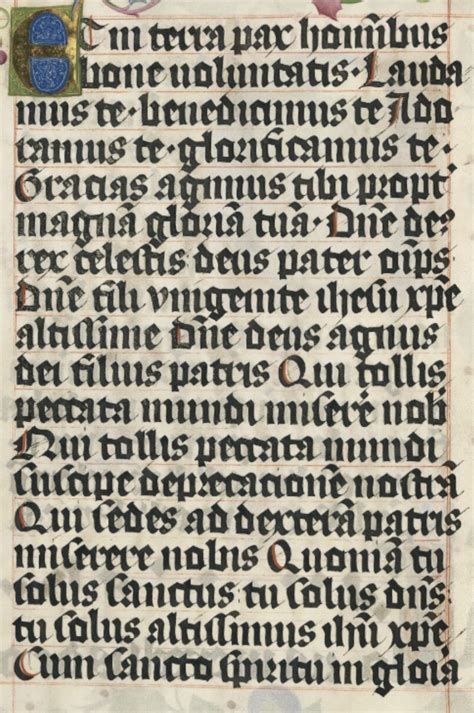 Et in terra pax hominibus
bone voluntatis. Lauda
mus te. benedicimus te Ado
ramus te. glorificamus te.
Gracias agimus tibi propt
magnā gloriā tuā. Dn̄e de9
rex celestis deus pater oīps
Dn̄e fili vnigenite ihesu xp̄e
altissime Dn̄e deus agnus
dei filius patris Qui tollis
peccata mundi miserē nob
Qui tollis peccata mundi
suscipe deprecacionē nostrā
Qui sedes ad dexterā patris
miserere nobis Quoniā tu
solus sanctus tu solus dn̄s
tu solus altissimus ihū xp̄e
Cum sancto spiritu in gloīa